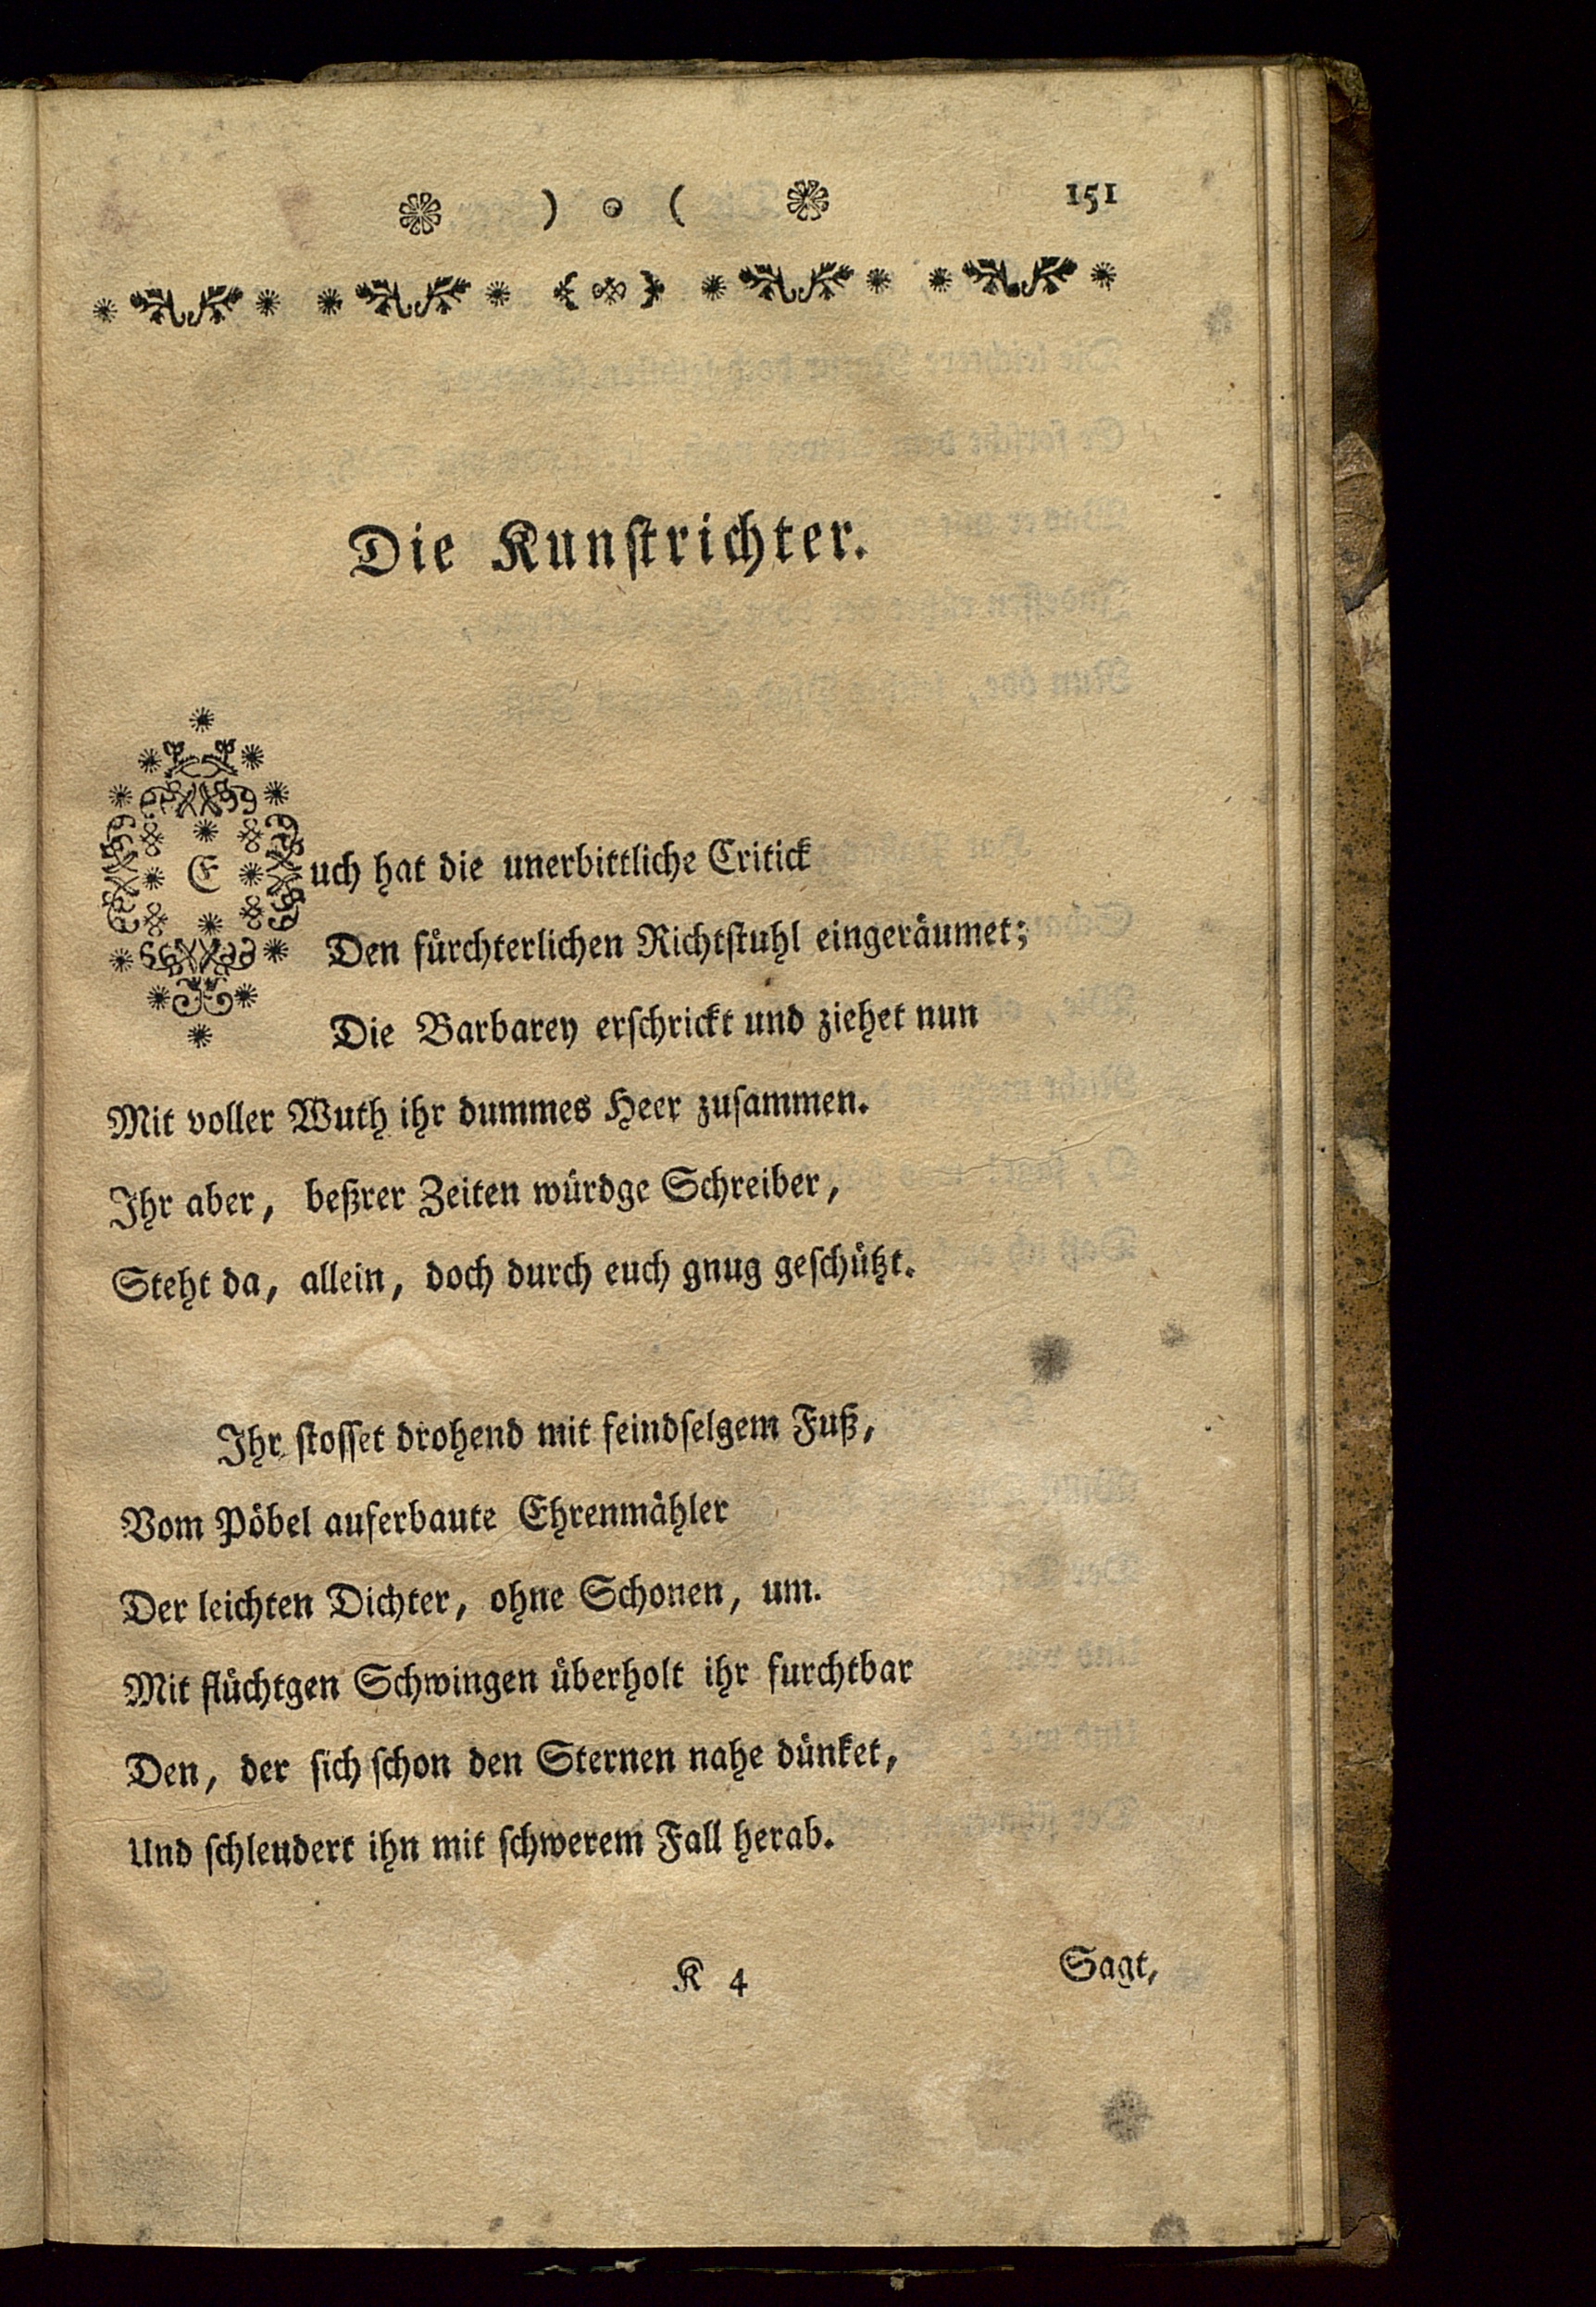 ) o ( 151
Die Kunstrichter.
Euch hat die unerbittliche Critick
Den fürchterlichen Richtstuhl eingeräumet;
Die Barbarey erschrickt und ziehet nun
Mit voller Wuth ihr dummes Heer zusammen.
Ihr aber, beßrer Zeiten würdge Schreiber,
Steht da, allein, doch durch euch gnug geschützt.
Ihr stosset drohend mit feindselgem Fuß,
Vom Pöbel auferbaute Ehrenmähler
Der leichten Dichter, ohne Schonen, um.
Mit flüchtgen Schwingen überholt ihr furchtbar
Den, der sich schon den Sternen nahe dünket,
Und schleudert ihn mit schwerem Fall herab.
K 4 Sagt,